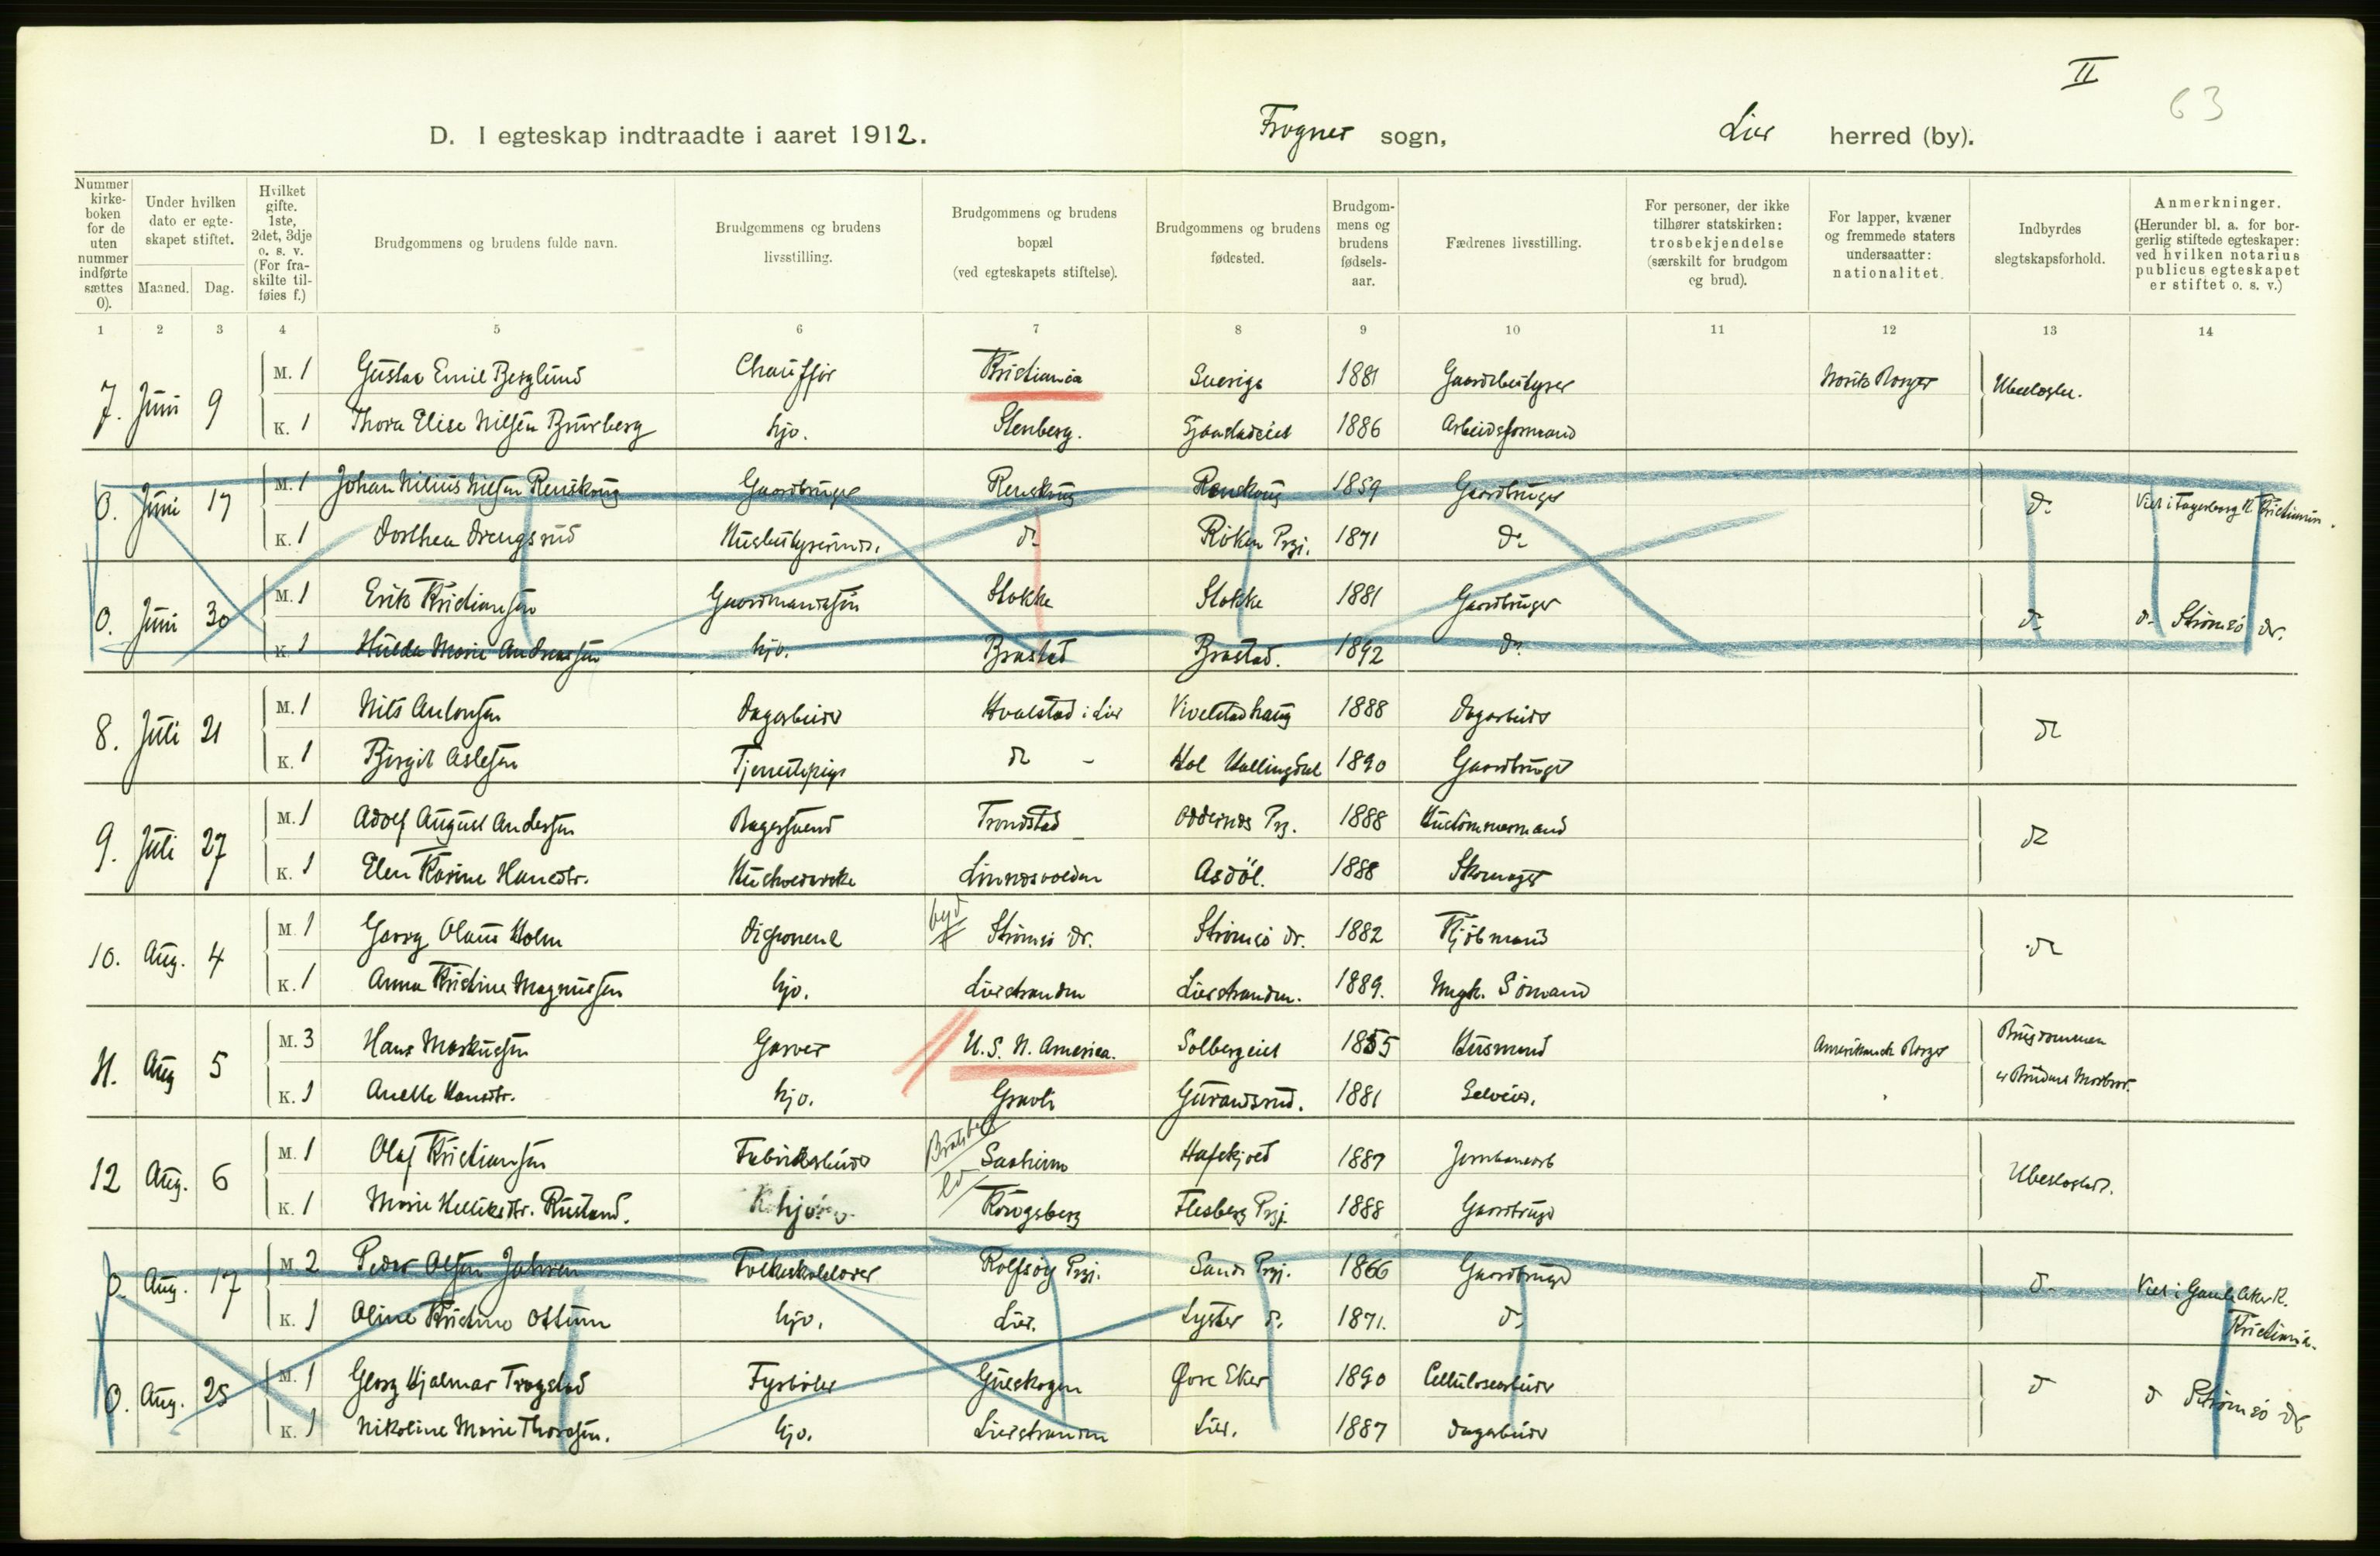 II
63
D. I egteskap indtraadte i aaret 1912. Frogner sogn, Lier herred (by).
Nummer kirke-boken for de uten nummer indførte sættes 0).
Under hvilken dato er egte-skapet stiftet.
Maaned. Dag.
Hvilket gifte. 1ste, 2det, 3dje o. s. v. (For fra-skilte til-føies f.)
Brudgommens og brudens fulde navn.
Brudgommens og brudens livsstilling.
Brudgommens og brudens bopæl (ved egteskapets stiftelse).
Brudgommens og brudens fødested.
Brudgom-mens og brudens fødsels-aar.
Fædrenes livsstilling.
For personer, der ikke tilhører statskirken: trosbekjendelse (særskilt for brudgom og brud).
For lapper, kvæner og fremmede staters undersaatter: nationalitet.
Indbyrdes slegtskapsforhold.
Anmerkninger. (Herunder bl. a. for bor-gerlig stiftede egteskaper: ved hvilken notarius publicus egteskapet er stiftet o. s. v.)
1 2 3 4 5 6 7 8 9 10 11 12 13 14
7. Juni 9 M. 1 Gustav Emil Berglund Chauffør Kristiania Sverige 1881 Norsk Borger Ubeslegtet.
K. 1 Thora Elise Nilsen Burberg hjv. Stenberg. 1886 Arbeidsformand
0. Juni 17 M. 1 Johan Nilsen Renskoug Gaardbruger Renskoug Renskoug 1859 Gaardbruger do Viet i Fagerborg K. Kristiania.
K. 1 Dorthea Drengsrud Husbestyrerinde. do Røken Prgj. 1871 do
0. Juni 30 M. 1 Erik Kristiansen Gaardmandssøn Stokke Stokke 1881 Gaardbruger do do Strømsø Dr.
K. 1 Hulda Marie Andreassen hjv. Brastad Brastad. 1892 do
8. Juli 21 M. 1 Nils Antonsen Dagarbeider Hvalstad i Lier 1888 Dagarbeider do
K. 1 Birgit Aslesen Tjenestepige do - Hol Hallingdal 1890 Gaardbruger
9. Juli 27 M. 1 Adolf August Andersen Bagersvend Trondstad Oddernes Prgj. 1888 Hustømmermand do
K. 1 Elen Karine Hansdtr. Linnesvolden Asdøl. 1888 Skomager
10. Aug. 4 M. 1 Georg Olaus Holm Disponent byd Strømsø Dr. Strømsø Dr. 1882 Kjøbmand do
K. 1 Anna Kristine Magnussen hjv. Lierstranden Lierstranden. 1889. Sømand
11. Aug 5 M. 3 Hans Markussen Garver U. S. N. Amerika. Solbergeiet 1855 Husmand Amerikansk Borger Brudgommen
K. 1 Anette Hansdtr. hjv. Gravli 1881 Selveier. er Brudens Morbror.
12 Aug. 6 M. 1 Olaf Kristiansen Fabrikarbeider Bratsberg Saaheim 1887 Jernbanearb Ubeslegtet.
K. 1 Marie Helliksdtr. Rustand. hjv. Kongsberg Flesberg Prgj. 1888 Gaardbruger
0. Aug. 17 M. 2 Peder Olsen Jahren Folkeskolelærer Rolfsøy Prgj. Sande Prgj. 1866 Gaardbruger do Viet i Gamle Aker K.
K. 1 Oline Kristine Ottum hjv. Lier. Lyster do 1871. do Kristiania.
0. Aug. 25 M. 1 Georg Hjalmar Trogstad Fyrbøter Gulskogen Øvre Eker 1890 Cellulosearbeider do do Strømsø Dr
K. 1 Nikoline Marie Thoresen. hjv. Lierstranden Lier. 1887 Dagarbeider